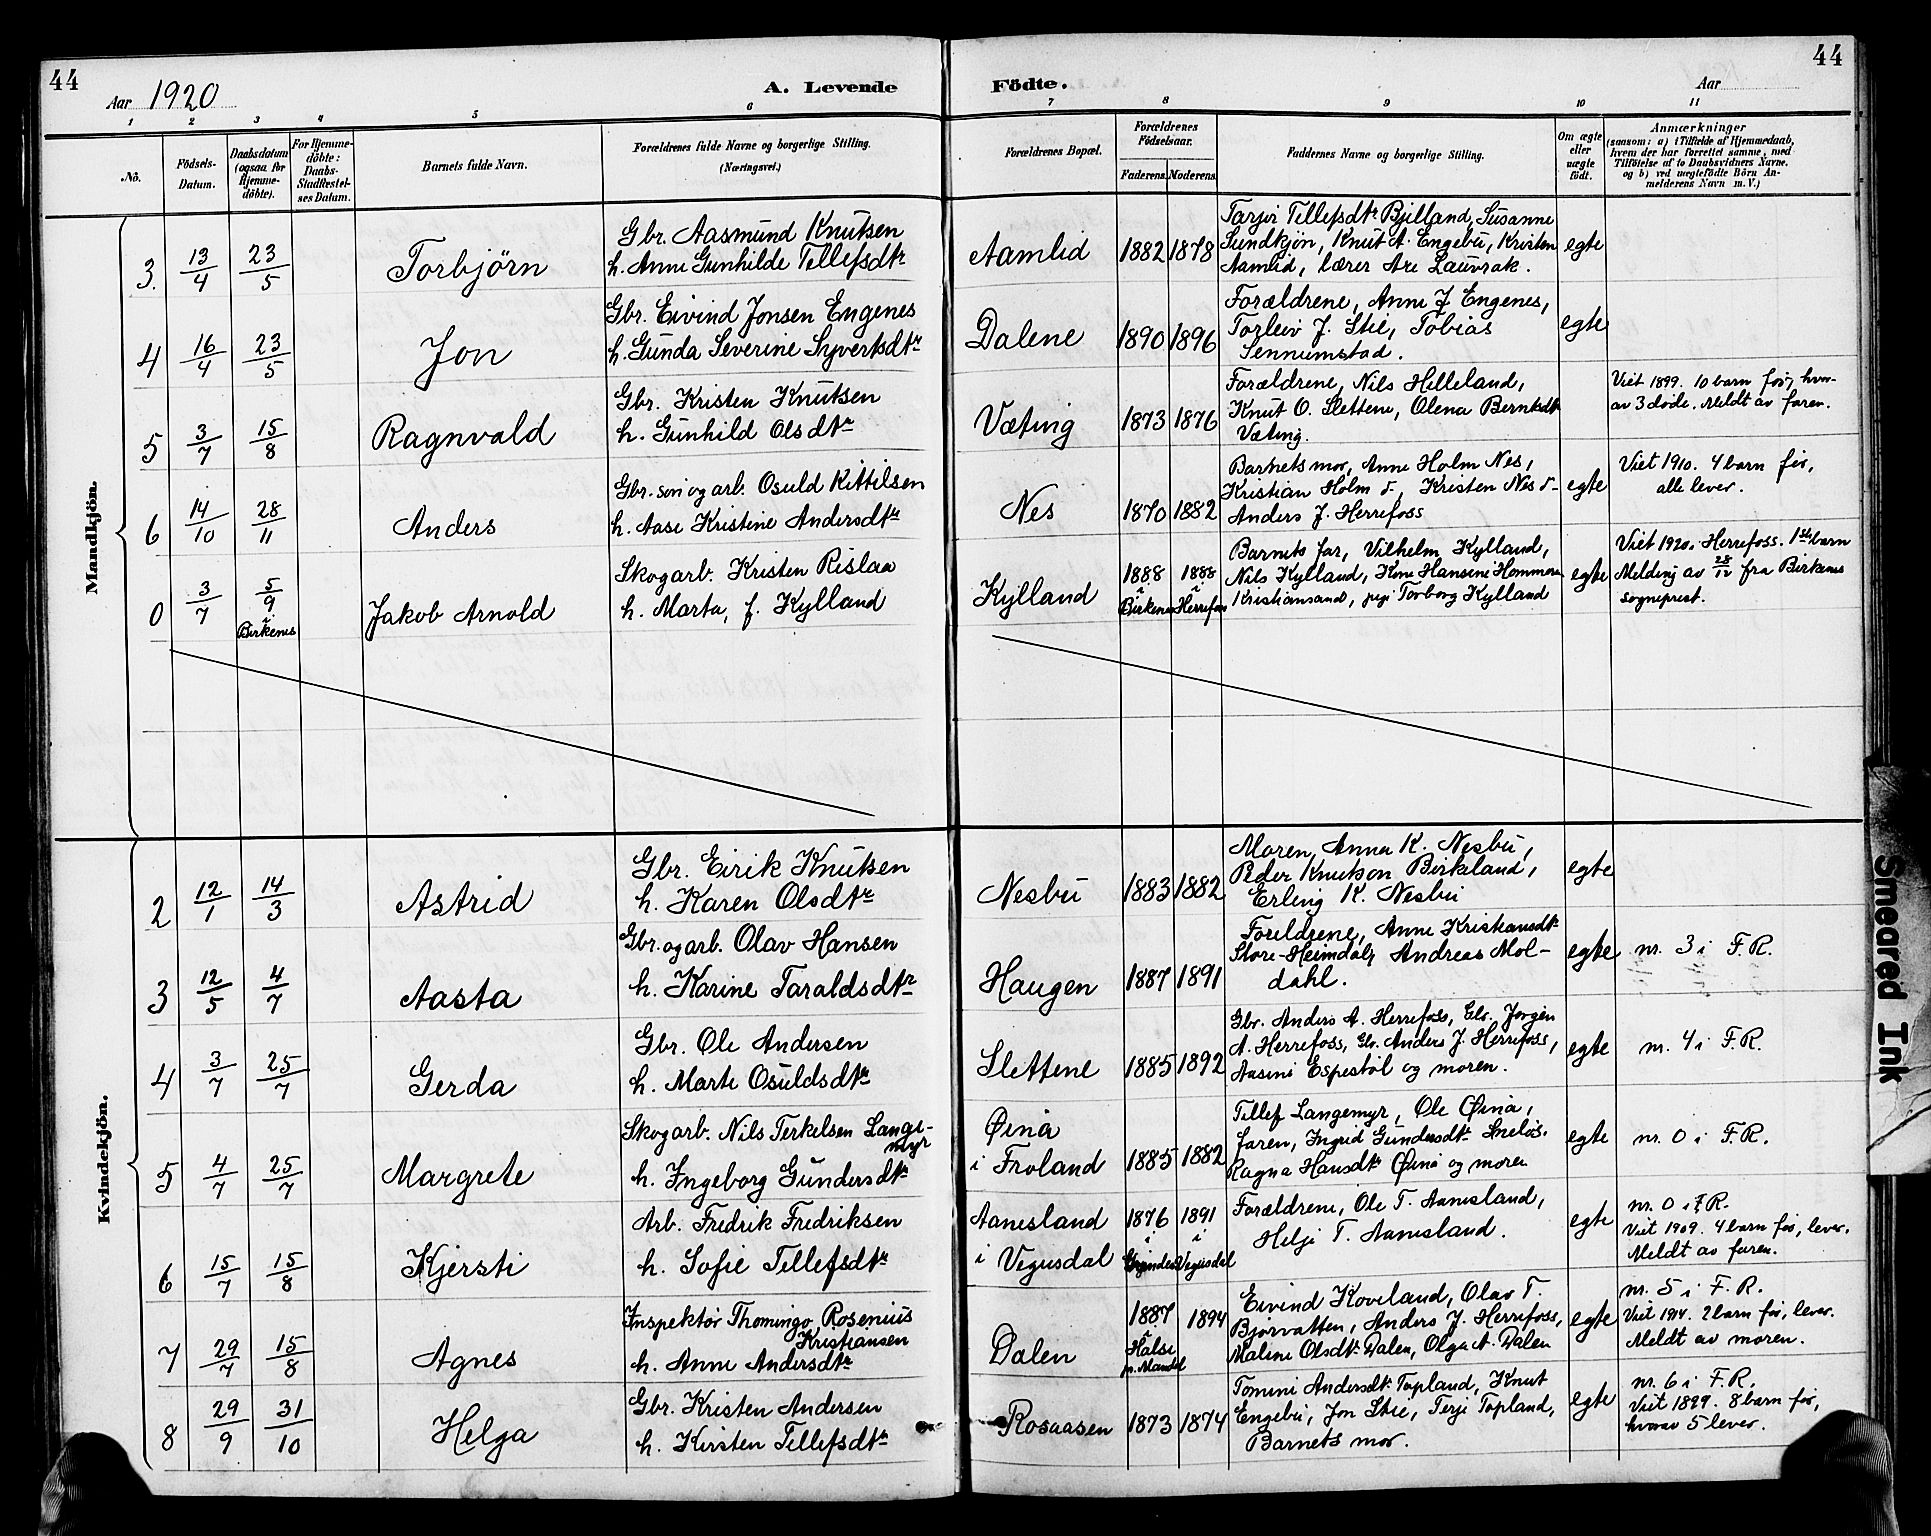 44
Aar 1920
A. Levende
Födte.
Aar
44
1 2 3 4 5 6 7 8 9 10 11
No.
Födsels-
Datum.
Daabsdatum
(ogsaa for
Hjemme-
döbte).
For Hjemme-
döbte:
Daabs-
Stadfæstel-
ses Datum.
Barnets fulde Navn.
Forældrenes fulde Navne og borgerlige Stilling.
(Næringsvei.)
Forældrenes Bopæl.
Forældrenes
Födselsaar.
Faderens. Moderens.
Faddernes Navne og borgerlige Stilling.
Om ægte
eller
uægte
födt.
Anmærkninger
(saasom: a) i Tilfælde af Hjemmedaab,
hvem der har forrettet samme, med
Tilföielse af to Daabsvidners Navne,
og b) ved uægtefödte Börn An-
melderens Navn m. V.)
Mandkjön.
3. 13/4 23/5 Torbjörn
Gbr. Aasmund Knutsen
h. Anne Gunhilde Tellefsdtr
Aamlid 1882 1878
Tarjei Tellefsdtr Bjelland, Susanne
Sundkjön, Knut A. Engebu, Kristen
Aamlid, lærer Are Lauvrak.
egte
4 16/4 23/5 Jon
Gbr. Eivind Jonsen Engenes
h. Gunda Severine Syvertsdtr
Dalene 1890 1896
Forældrene, Anne J Engenes,
Torleiv J. Stie, Tobias
Sennumstad.
egte
5 3/7 15/8 Ragnvald
Gbr. Kristen Knutsen
h. Gunhild Olsdtr
Væting 1873 1876
Forældrene, Nils Helleland,
Knut O. Slettene, Olena Berntsdtr
Væting.
Viet 1899. 10 barn før, hvor-
av 3 døde. Meldt av faren.
6 14/10 28/11 Anders
Gbr. søn og arb. Osuld Kittilsen
h. Aase Kristine Andersdtr
Nes 1870 1882
Barnets mor, Anne Holm Nes,
Kristian Holm, Kristen Nes
Anders J. Herrefoss
egte
Viet 1910. 4 barn før,
alle lever.
0 3/7 5/9 i Birkenes Jakob Arnold
Skogarb. Kristen Rislaa
h. Marta, f. Kylland
Kylland 1888 i Birkenes 1888 i Herrefoss
Barnets far, Vilhelm Kylland,
Nils Kylland, Kone Hansine Hommeren
Kristiansand, pige Torborg Kylland
egte
Viet 1920 i Herrefoss. 1ste barn
Melding av 28/12 fra Birkenes
sogneprest.
Kvindekjön.
2 12/1 14/3 Astrid
Gbr. Eirik Knutsen
h. Karen Olsdtr
Nesbu 1883 1882
Moren, Anna K. Nesbu,
Peder Knutson Birkland,
Erling K. Nesbu
egte
3 12/5 4/7 Aasta
Gbr. og arb. Olav Hansen
h. Karine Taraldsdtr
Haugen 1887 1891
Foreldrene, Anne Kristiansdtr
Store-Heimdal, Andreas Mol-
dahl.
egte
nr. 3 i F.R.
4 3/7 25/7 Gerda
Gbr. Ole Andersen
h. Marte Osuldsdtr
Slettene 1885 1892
Gbr. Anders A. Herrefoss, Gbr. Jørgen
A. Herrefoss, Gbr. Anders J. Herrefoss,
Aasine Espestøl og moren.
egte
nr. 4 i F.R.
5 4/7 25/7 Margrete
Skogarb. Nils Terkelsen Lange-
myr
h. Ingeborg Gundersdtr
Øina
i Froland 1885 1882
Tellef Langemyr, Ole Øina,
faren, Ingrid Gundersdtr Sneløs.
Ragna Hansdtr Øina og moren
egte
nr. 0 i F.R.
6 15/7 15/8 Kjersti
Arb. Fredrik Fredriksen
h. Sofie Tellefsdtr
Aanesland
i Vegusdal
1876 i 1891 i Vegusdal
Forældrene, Ole T. Aanesland,
Helje T. Aanesland.
egte
nr. 0 i F.R.
Viet 1909. 4 barn før, lever.
Meldt av faren.
7 29/7 15/8 Agnes
Inspektør Thomingo Rosenius
Kristiansen
h. Anne Andersdtr
Dalen 1887 i Halse pr. Mandal 1894
Eivind Koveland, Olav T.
Bjorvatten, Anders J. Herrefoss,
Maline Olsdtr Dalen, Olga A. Dalen
egte
nr. 5 i F.R.
Viet 1914. 2 barn før, lever.
Meldt av moren.
8 29/9 31/10 Helga
Gbr. Kristen Andersen
h. Kirsten Tellefsdtr
Rosaasen 1873 1874
Tomine Andersdtr Topland, Knut
Engebu, Jon Stie, Terje Topland,
Barnets mor.
egte
nr. 6 i F.R.
Viet 1899. 8 barn før,
hvorav 5 lever.
Smeared Ink